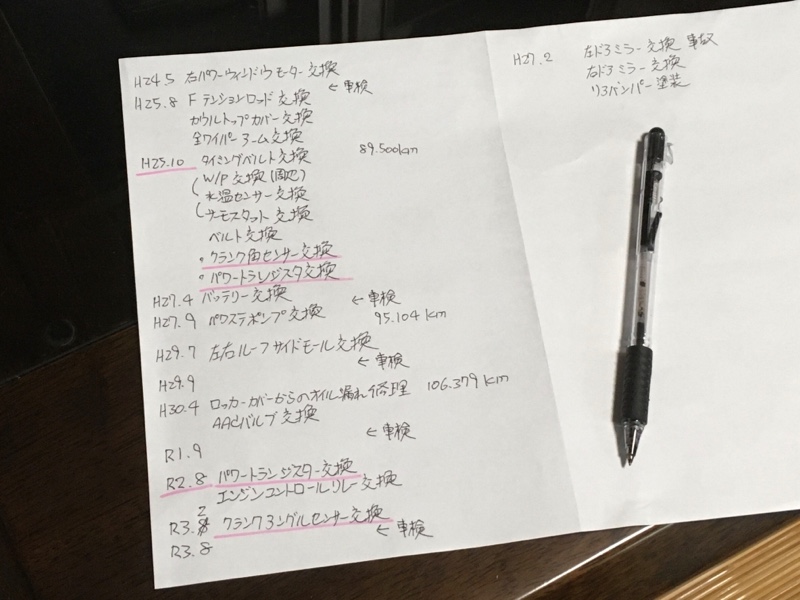 H24.5 右パワーウィンドウモーター交換
← 車検
H25.8 Fテンションロッド交換
カウルトップカバー交換
全ワイパーアーム交換
H25.10 タイミングベルト交換 89.500km
W/P交換(周辺)
水温センサー交換
サーモスタット交換
ベルト交換
・クランク角センサー交換
・パワートランジスタ交換
H27.4 バッテリー交換 ← 車検
H27.9 パワステポンプ交換 95.104km
H29.7 左右ルーフサイドモール交換
← 車検
H29.9
H30.4 ロッカーカバーからのオイル漏れ修理 106.379km
AACバルブ交換
← 車検
R1.9
R2.8 パワートランジスター交換
エンジンコントロールリレー交換
R3.2 クランクアングルセンサー交換
← 車検
R3.8
H27.2 左ドアミラー交換 事故
右ドアミラー交換
リアバンパー塗装